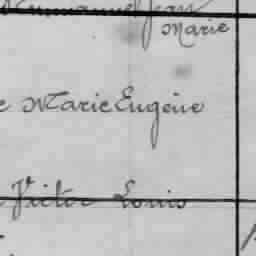 Emmanuel Jean
Marie
e Marie Eugène
Victor Louis